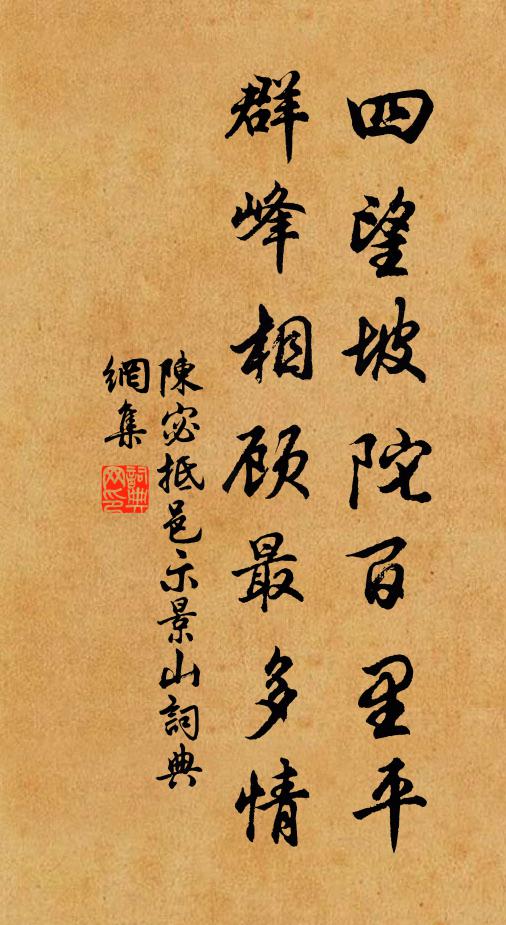 四望坡陀百里平
群峰相顾最多情
陳宓抵邑示景山詞典
網集
詞典
网印